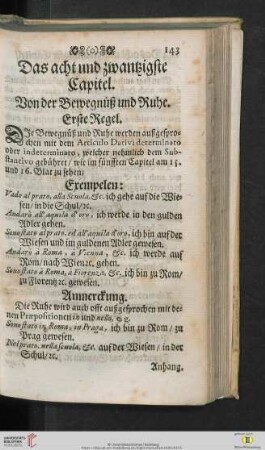 143
Das acht und zwantzigste
Capitel.
Von der Bewegnüß und Ruhe.
Erste Regel.
Die Bewegnüß und Ruhe werden außgespro-
chen mit dem Articulo Dativi determinato
oder indeterminato, welcher nehmlich dem Sub-
stantivo gebühret / wie im fünfften Capitel am 15.
und 16. Blat zu sehen;
Exempelen:
Vado al prato, alla Scuola, &c. ich gehe auf die Wie-
sen / in die Schul / ꝛc.
Andarò all'aquila d'oro, ich werde in den gulden
Adler gehen.
Sono stato al prato, ed all'aquila d'oro, ich bin auf der
Wiesen und im guldenen Adler gewesen.
Andarò à Roma, à Vienna, &c. ich werde auf
Rom / nach Wien ꝛc. gehen.
Sono stato à Roma, à Fiorenza, &c. ich bin zu Rom /
zu Florentz ꝛc. gewesen.
Anmerckung.
Die Ruhe wird auch offt außgesprochen mit de-
nen Præpositionen in und nello,
Sono stato in Roma, in Praga, ich bin zu Rom / zu
Prag gewesen.
Nel prato, nella scuola, &c. auf der Wiesen / in der
Schul / ꝛc.
Anhang.